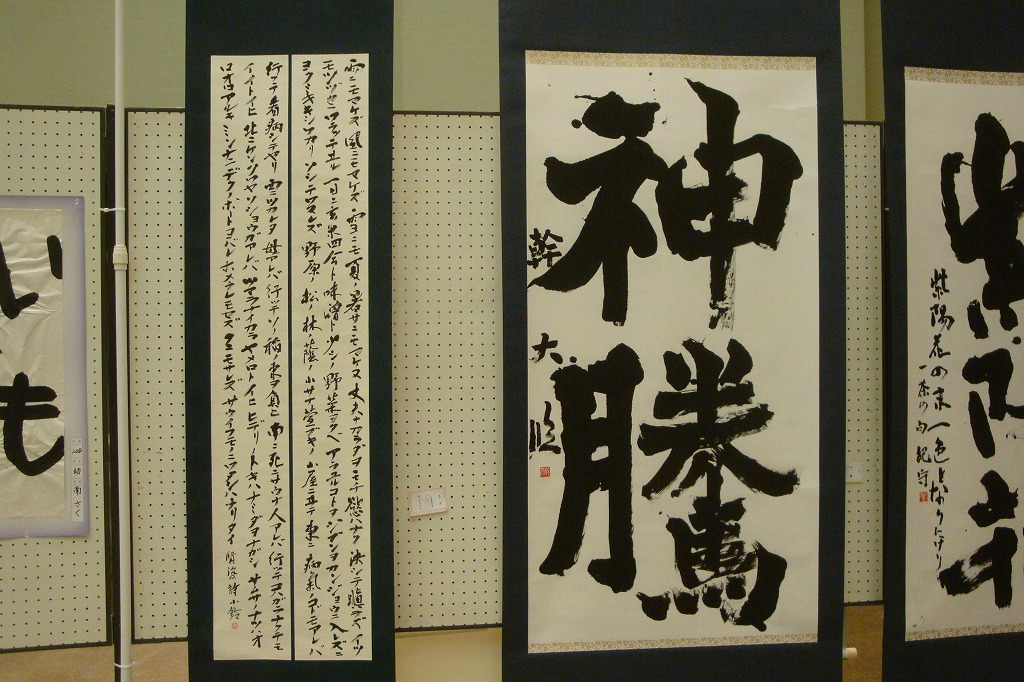 紫陽花
紫陽花の末一色となりにけり
一茶の句
神騰
幹大臨
雨ニモマケズ風ニモマケズ雪ニモ夏ノ暑サニモマケヌ丈夫ナカラダヲモチ慾ハナク決シテ瞋ラズイツ
モシヅカニワラッテヰル一日ニ玄米四合ト味噌ト少シノ野菜ヲタベアラユルコトヲジブンヲカンジョウニ入レズニ
ヨクミキキシワカリソシテワスレズ野原ノ松ノ林ノ蔭ノ小サナ萱ブキノ小屋ニヰテ東ニ病氣ノコドモアレバ
行ッテ看病シテヤリ西ニツカレタ母アレバ行ッテソノ稲ノ束ヲ負ヒ南ニ死ニサウナ人アレバ行ッテコハガラナクテモ
イイトイヒ北ニケンクヮヤソショウガアレバツマラナイカラヤメロトイヒヒデリノトキハナミダヲナガシサムサノナツハオ
ロオロアルキミンナニデクノボートヨバレホメラレモセズクニモサレズサウイフモノニワタシハナリタイ 賢治詩 小鈴
いも